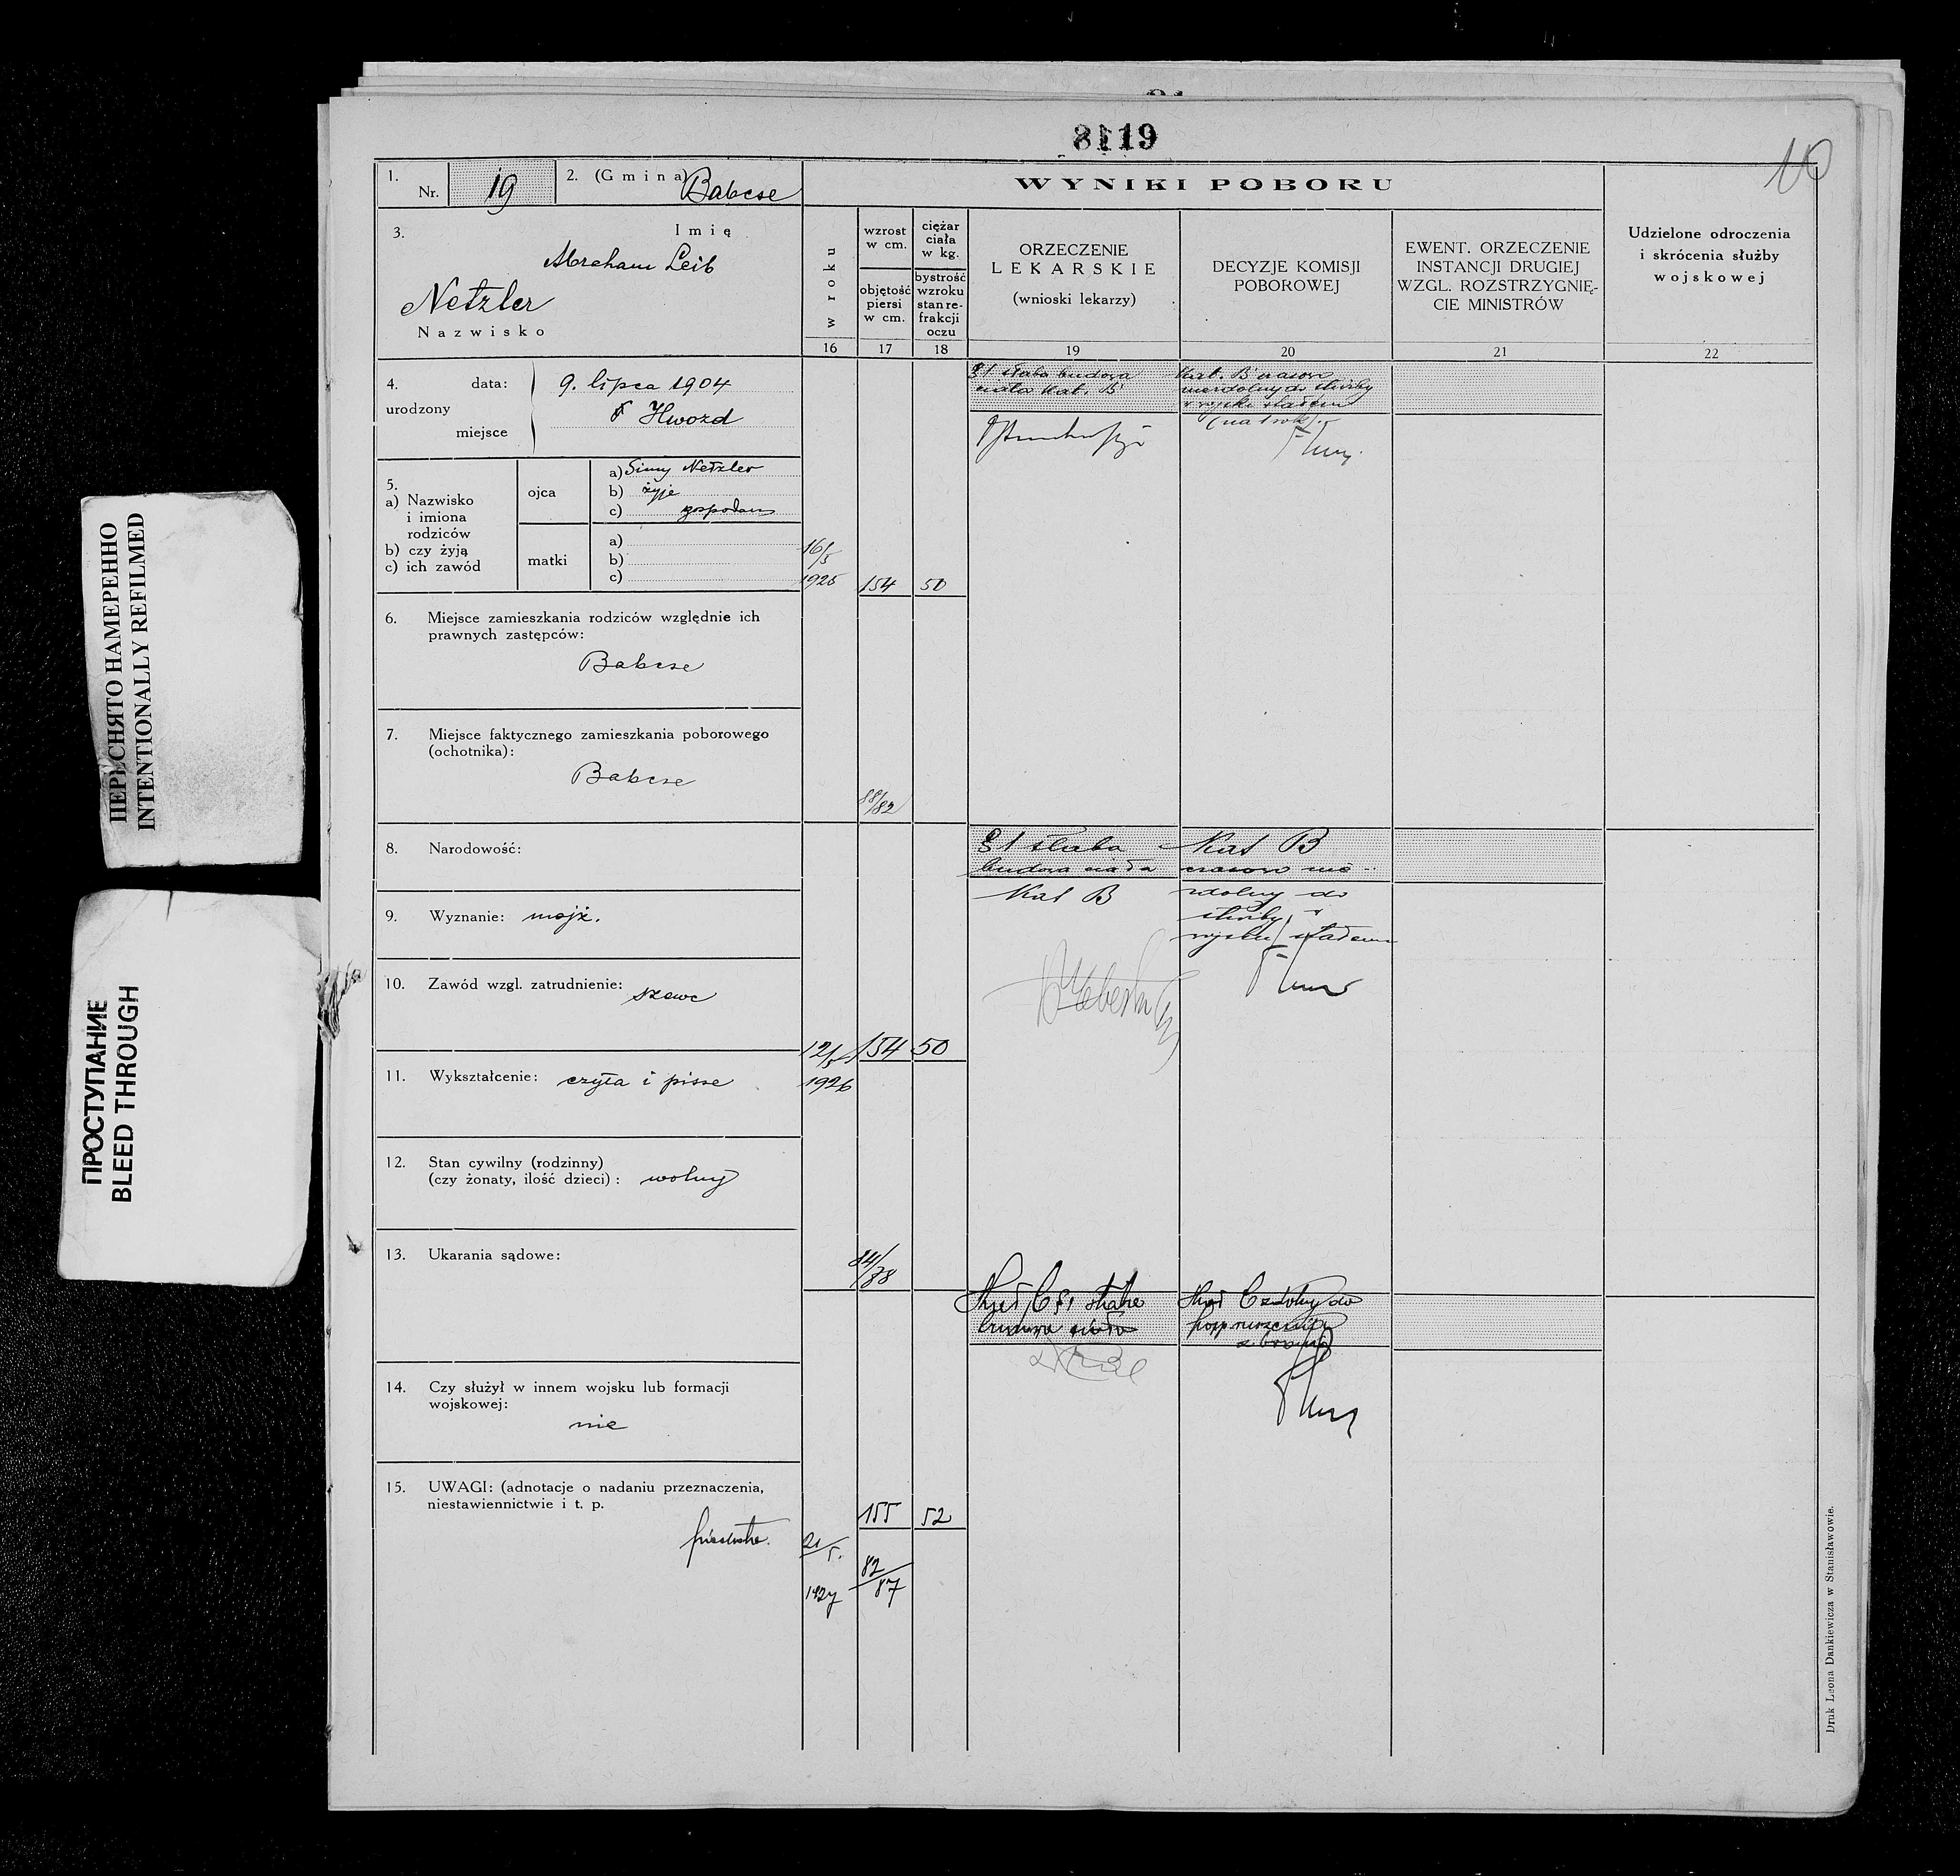 8119
10
1. Nr. 19
2. (Gmina) Babcse
3. Imię
Abraham Leib
Netzler
Nazwisko
4. urodzony
data: 9. lipca 1904
miejsce Hwozd
5.
a) Nazwisko
i imiona
rodziców
b) czy żyją
c) ich zawód
ojca
a) Simy Netzler
b) żyje
c) gospodarz
matki
a)
b)
c)
6. Miejsce zamieszkania rodziców względnie ich
prawnych zastępców:
Babcse
7. Miejsce faktycznego zamieszkania poborowego
(ochotnika):
Babcse
8. Narodowość:
9. Wyznanie: mojż.
10. Zawód wzgl. zatrudnienie: szewc
11. Wykształcenie: czyta i pisze
12. Stan cywilny (rodzinny)
(czy żonaty, ilość dzieci): wolny
13. Ukarania sądowe:
14. Czy służył w innem wojsku lub formacji
wojskowej:
nie
15. UWAGI: (adnotacje o nadaniu przeznaczenia,
niestawiennictwie i t. p.
WYNIKI POBORU
w roku
16
wzrost
w cm.
objętość
piersi
w cm.
17
ciężar
ciała
w kg.
bystrość
wzroku
stan re-
frakcji
oczu
18
ORZECZENIE
LEKARSKIE
(wnioski lekarzy)
19
DECYZJE KOMISJI
POBOROWEJ
20
EWENT. ORZECZENIE
INSTANCJI DRUGIEJ
WZGL. ROZSTRZYGNIĘ-
CIE MINISTRÓW
21
Udzielone odroczenia
i skrócenia służby
wojskowej
22
16/5
1925
154
50
88/82
§1 słaba budowa
ciała Kat. B
Kat. B czasowo
niezdolny do służby
w wojsku stałem
(na 1 rok).
12/5
1926
154
50
84/88
§1 słaba
budowa ciała
Kat B
Kat B
czasowo nie-
zdolny do
służby w
wojsku stałem
21/5.
1927
155
52
82/87
Kat C §1 słaba
budowa ciała
Kat C zdolny do
posp ruszenia
z bronią
Druk Leona Dankiewicza w Stanisławowie.
ПЕРЕСНЯТО НАМЕРЕННО
INTENTIONALLY REFILMED
ПРОСТУПАНИЕ
BLEED THROUGH